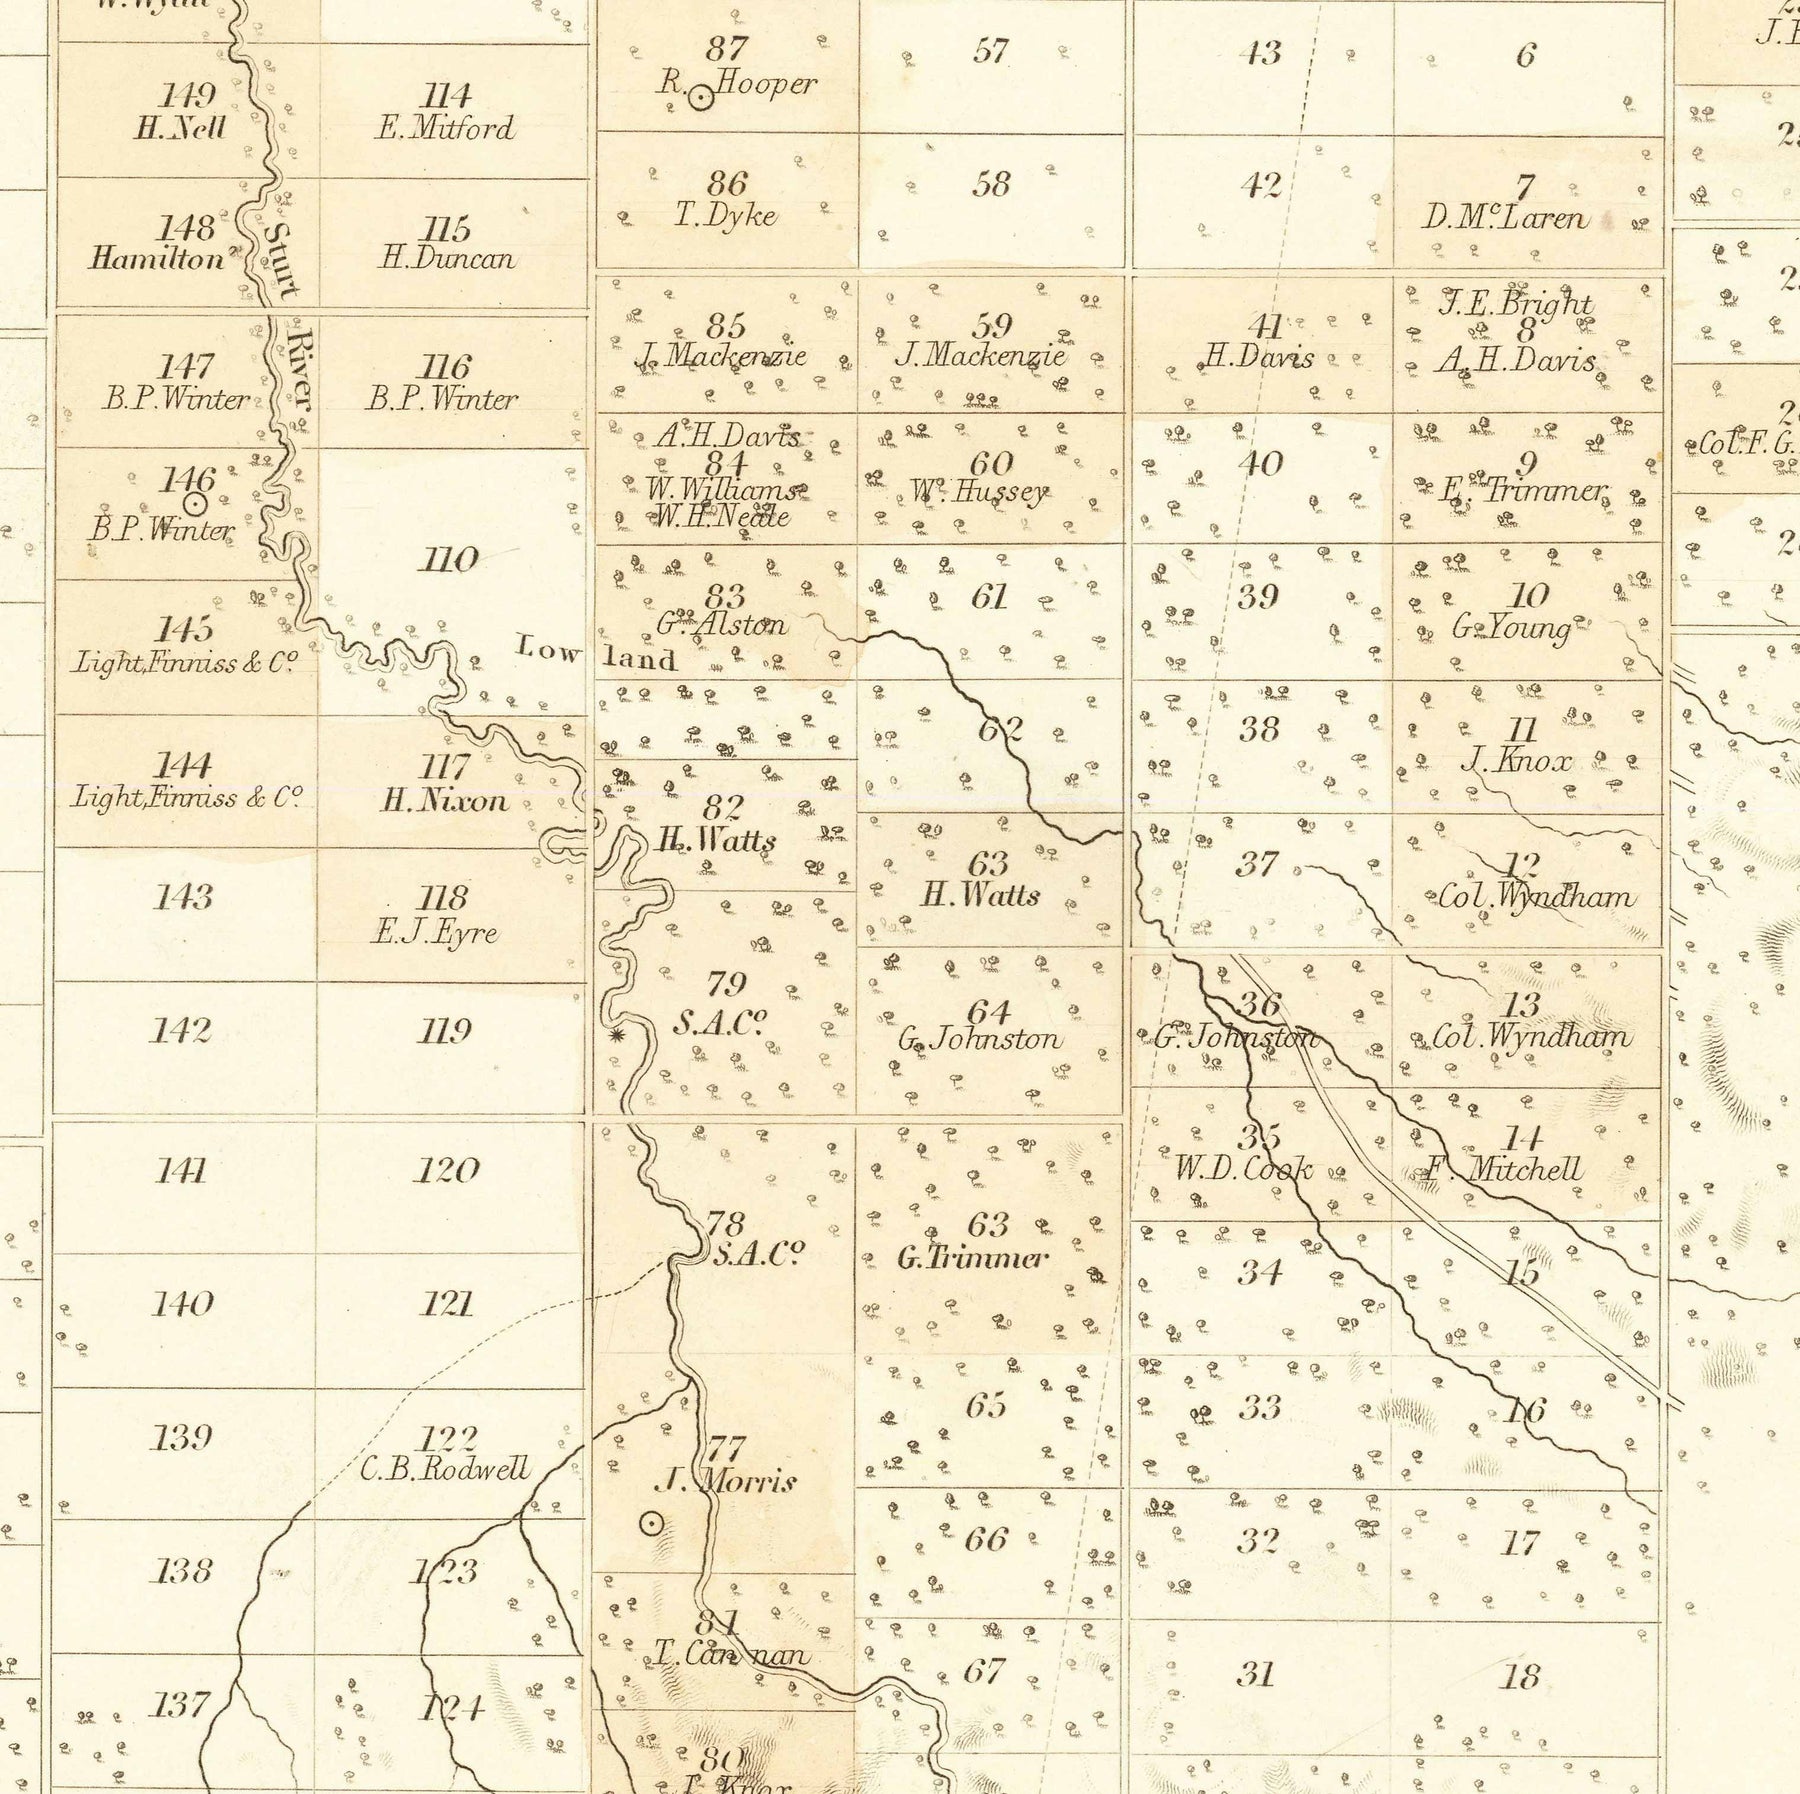 87
R. Hooper
57
43
6
149
H. Nell
114
E. Mitford
86
T. Dyke
58
42
7
D. Mc. Laren
148
Hamilton
115
H. Duncan
Sturt
River
85
J. Mackenzie
59
J. Mackenzie
41
H. Davis
J. E. Bright
8
A. H. Davis
147
B. P. Winter
116
B. P. Winter
A. H. Davis
84
W. Williams
W. H. Neale
60
Wm. Hussey
40
9
E. Trimmer
Col. F. G.
146
B. P. Winter
110
83
Go. Alston
61
39
10
G. Young
145
Light, Finniss & Co.
Low land
62
38
11
J. Knox
144
Light, Finniss & Co.
117
H. Nixon
82
H. Watts
63
H. Watts
37
12
Col. Wyndham
143
118
E. J. Eyre
79
S. A. Co.
64
G. Johnston
36
G. Johnston
13
Col. Wyndham
142
119
35
W. D. Cook
14
F. Mitchell
141
120
78
S. A. Co.
63
G. Trimmer
34
15
140
121
65
33
16
139
122
C. B. Rodwell
77
J. Morris
66
32
17
138
123
81
T. Cannan
67
31
18
137
124
80
J. Knox